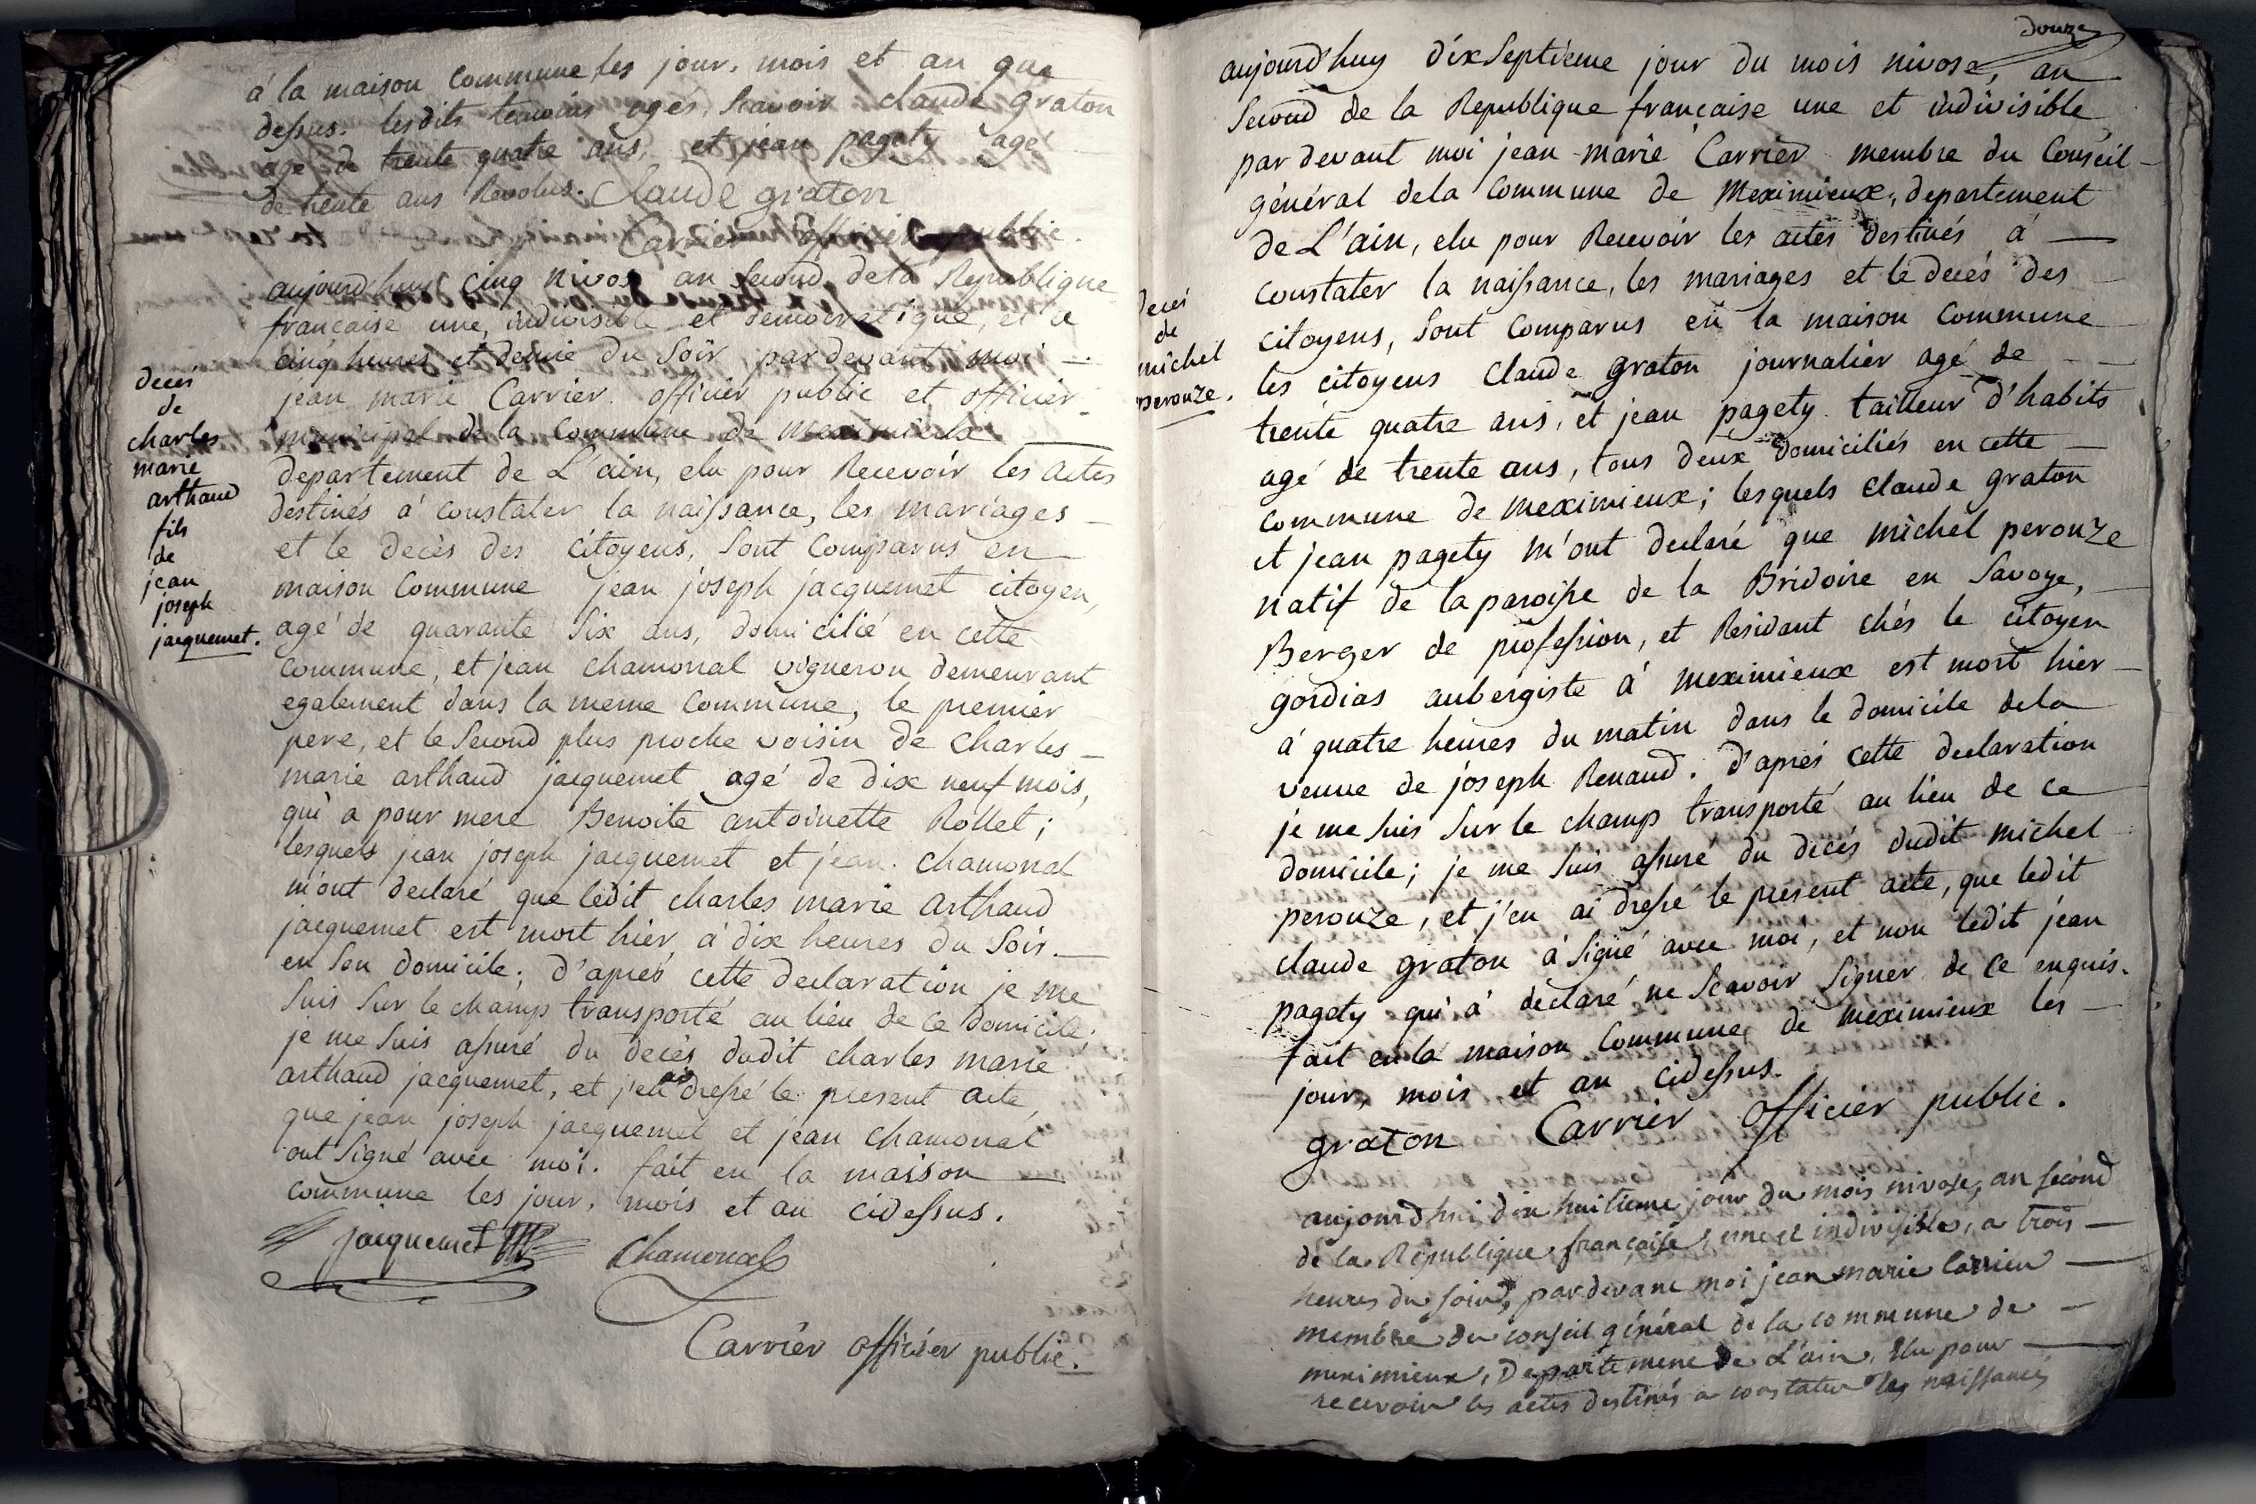 à la maison commune les jour, mois et an que
dessus. lesdits temoins agés, Scavoir claude graton
agé de trente quatre ans, et jean pagety agé
de trente ans Revolus. Claude graton
Carrier officier public.
aujourd'huy cinq nivose an Second de la Republique
francaise une, indivisible et democratique, et à
cinq heures et demie du Soir, pardevant moi
jean marie Carrier officier public et officier
municipal de la Commune de meximieux
departement de L'ain, elu pour Recevoir les actes
destinés à constater la naissance, les mariages
et le decès des citoyens, Sont Comparus en
maison Commune jean joseph jacquemet citoyen,
agé de quarante Six ans, domicilié en cette
commune, et jean chamonal vigneron demeurant
egalement dans la meme Commune, le premier
pere, et le Second plus proche voisin de charles
marie arthaud jacquemet agé de dix neuf mois,
qui a pour mere Benoite antoinette Rollet;
lesquels jean joseph jacquemet et jean chamonal
m'ont declaré que ledit charles marie arthaud
jacquemet est mort hier à dix heures du Soir
en Son domicile; d'après cette declaration je me
Suis Sur le champs transporté au lieu de ce domicile;
je me Suis assuré du decès dudit charles marie
arthaud jacquemet, et j'en ai dressé le present acte,
que jean joseph jacquemet et jean chamonal
ont Signé avec moi. fait en la maison
commune les jour, mois et an cidessus.
jacquemet chamonal
Carrier officier public.
decès
de
charles
marie
arthaud
fils
de
jean
joseph
jacquemet.
douze
aujourd'huy dix Septieme jour du mois nivose, an
Second de la Republique française une et indivisible
par devant moi jean marie Carrier membre du Conseil
général de la Commune de Meximieux, departement
de L'ain, elu pour Recevoir les actes destinés à
constater la naissance, les mariages et le decès des
citoyens, Sont Comparus en la maison Commune
les citoyens claude graton journalier agé de
trente quatre ans, et jean pagety tailleur d'habits
agé de trente ans, tous deux domiciliés en cette
commune de meximieux; lesquels claude graton
et jean pagety m'ont declaré que michel perouze
natif de la paroisse de la Bridoire en Savoye,
Berger de profession, et Residant chés le citoyen
gordias aubergiste à meximieux est mort hier
à quatre heures du matin dans le domicile de la
veuve de joseph Renaud. d'après cette declaration
je me suis Sur le champs transporté au lieu de ce
domicile; je me suis assuré du decès dudit michel
perouze, et j'en ai dressé le present acte, que ledit
claude graton à Signé avec moi, et non ledit jean
pagety qui à declaré ne Scavoir Signer de ce enquis.
fait en la maison Commune de meximieux les
jour, mois et an cidessus.
graton Carrier officier public.
decès
de
michel
perouze.
aujourd'hui dix huitieme jour du mois nivose, an second
de la République française, une et indivisible, a trois
heures du soir, pardevant moi jean marie Carrier
membre du conseil général de la commune de
meximieux, Departement de L'ain, Elu pour
recevoir les actes destinés a constater les naissances